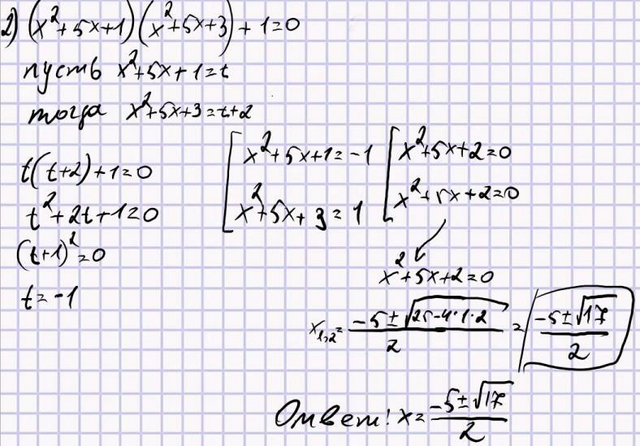 2) (x²+5x+1)(x²+5x+3)+1=0
пусть x²+5x+1=t
тогда x²+5x+3=t+2
t(t+2)+1=0
t²+2t+1=0
(t+1)²=0
t=-1
[x²+5x+1=-1
x²+5x+3=1
[x²+5x+2=0
x²+5x+2=0
x²+5x+2=0
x₁,₂=(-5±√(25-4·1·2))/2=(-5±√17)/2
Ответ: x=(-5±√17)/2